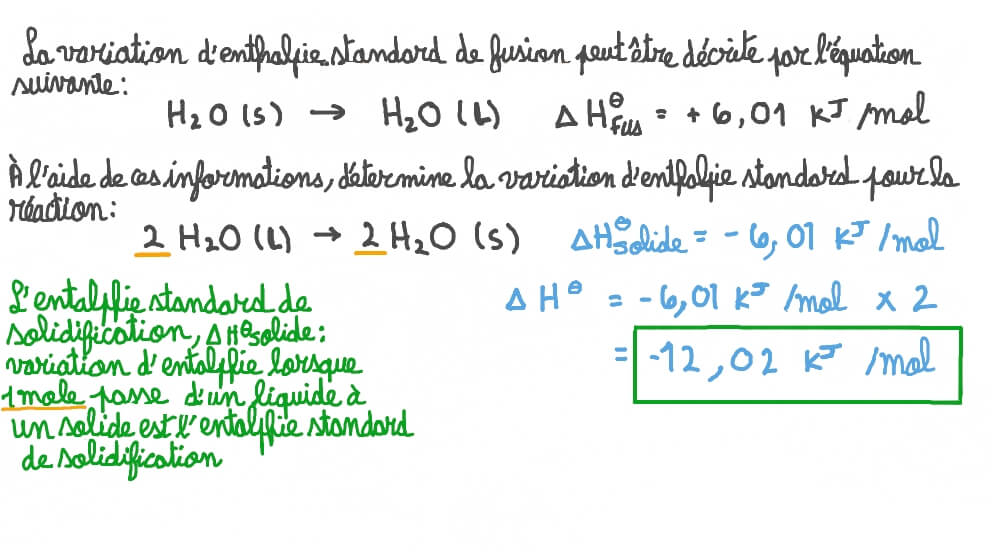 La variation d'enthalpie standard de fusion peut être décrite par l'équation
suivante:
H₂O (s) → H₂O (L) ΔH⦵fus = + 6,01 kJ/mol
À l'aide de ces informations, détermine la variation d'enthalpie standard pour la
réaction:
2 H₂O (L) → 2 H₂O (s) ΔH⦵solide = - 6,01 kJ/mol
ΔH⦵ = -6,01 kJ/mol x 2
= -12,02 kJ/mol
L'entalpfie standard de
solidification, ΔH⦵solide:
variation d'entalpfie lorsque
1 mole passe d'un liquide à
un solide est l'entalpfie standard
de solidification